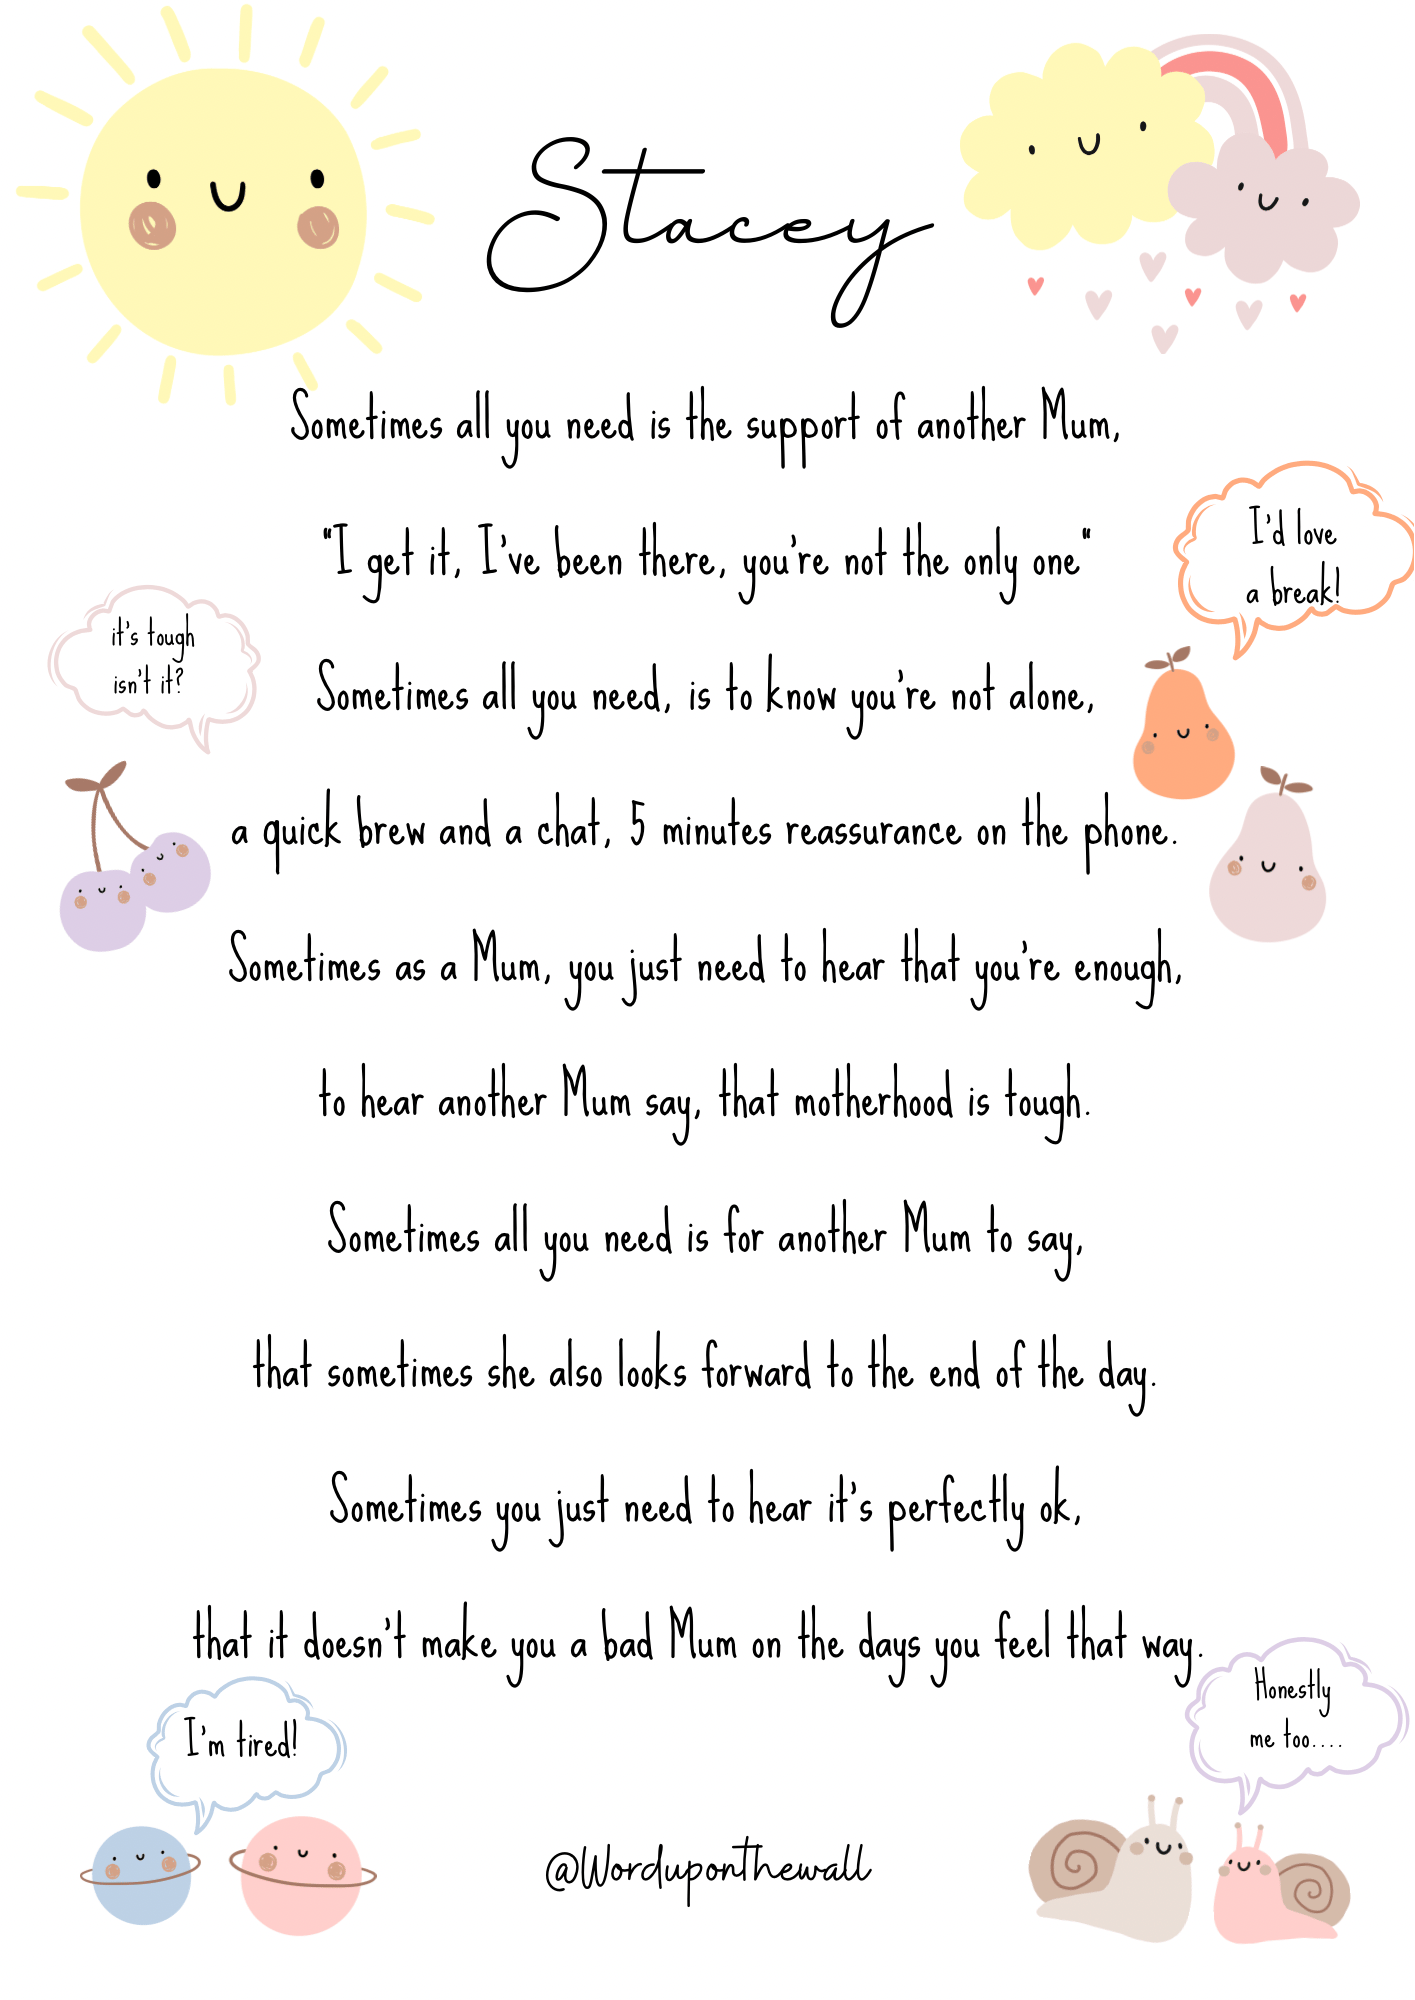 Stacey
Sometimes all you need is the support of another Mum,
"I get it, I've been there, you're not the only one"
Sometimes all you need, is to know you're not alone,
a quick brew and a chat, 5 minutes reassurance on the phone.
Sometimes as a Mum, you just need to hear that you're enough,
to hear another Mum say, that motherhood is tough.
Sometimes all you need is for another Mum to say,
that sometimes she also looks forward to the end of the day.
Sometimes you just need to hear it's perfectly ok,
that it doesn't make you a bad Mum on the days you feel that way.
I'd love
a break!
it's tough
isn't it?
I'm tired!
Honestly
me too....
@Worduponthewall